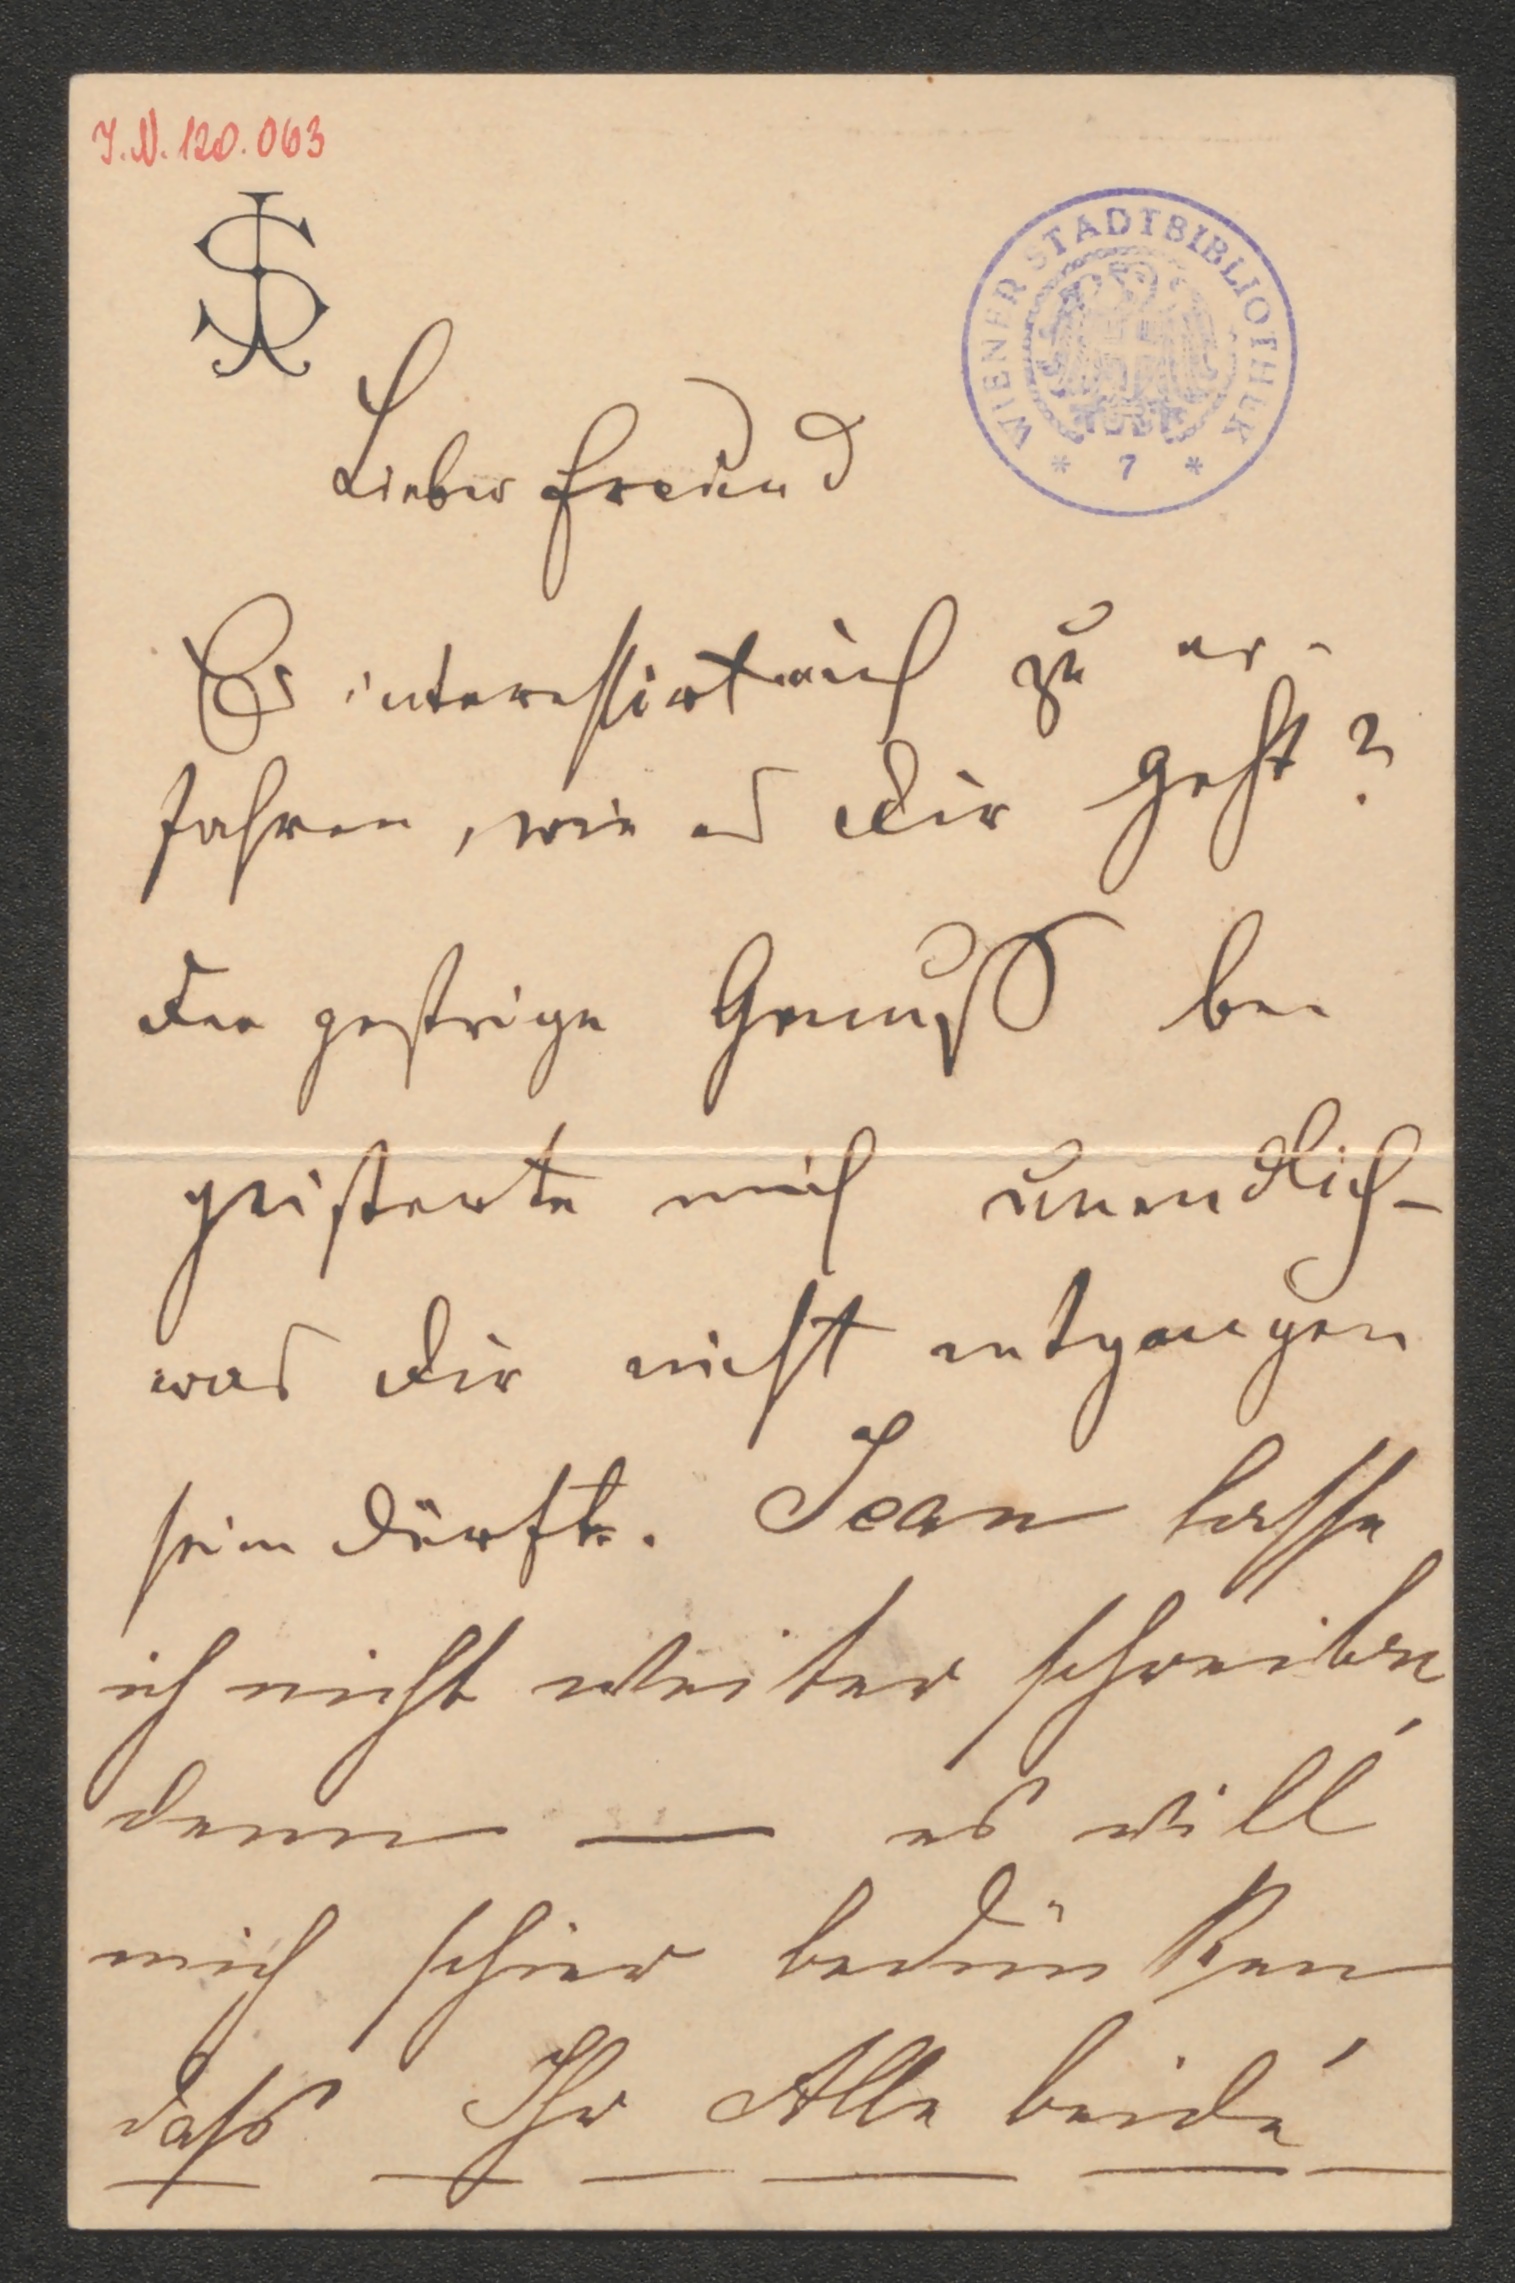 J.N. 120.063
JS
WIENER STADTBIBLIOTHEK
* 7 *
Lieber Freund
Es interessirt mich zu er-
fahren, wie es Dir geht?
Der gestrige Genuß be
geisterte mich unendlich –
was Dir nicht entgangen
sein dürfte. Jean lasse
ich nicht weiter schreiben,
denn — es will
mich schier bedünken,
dass Ihr Alle beide